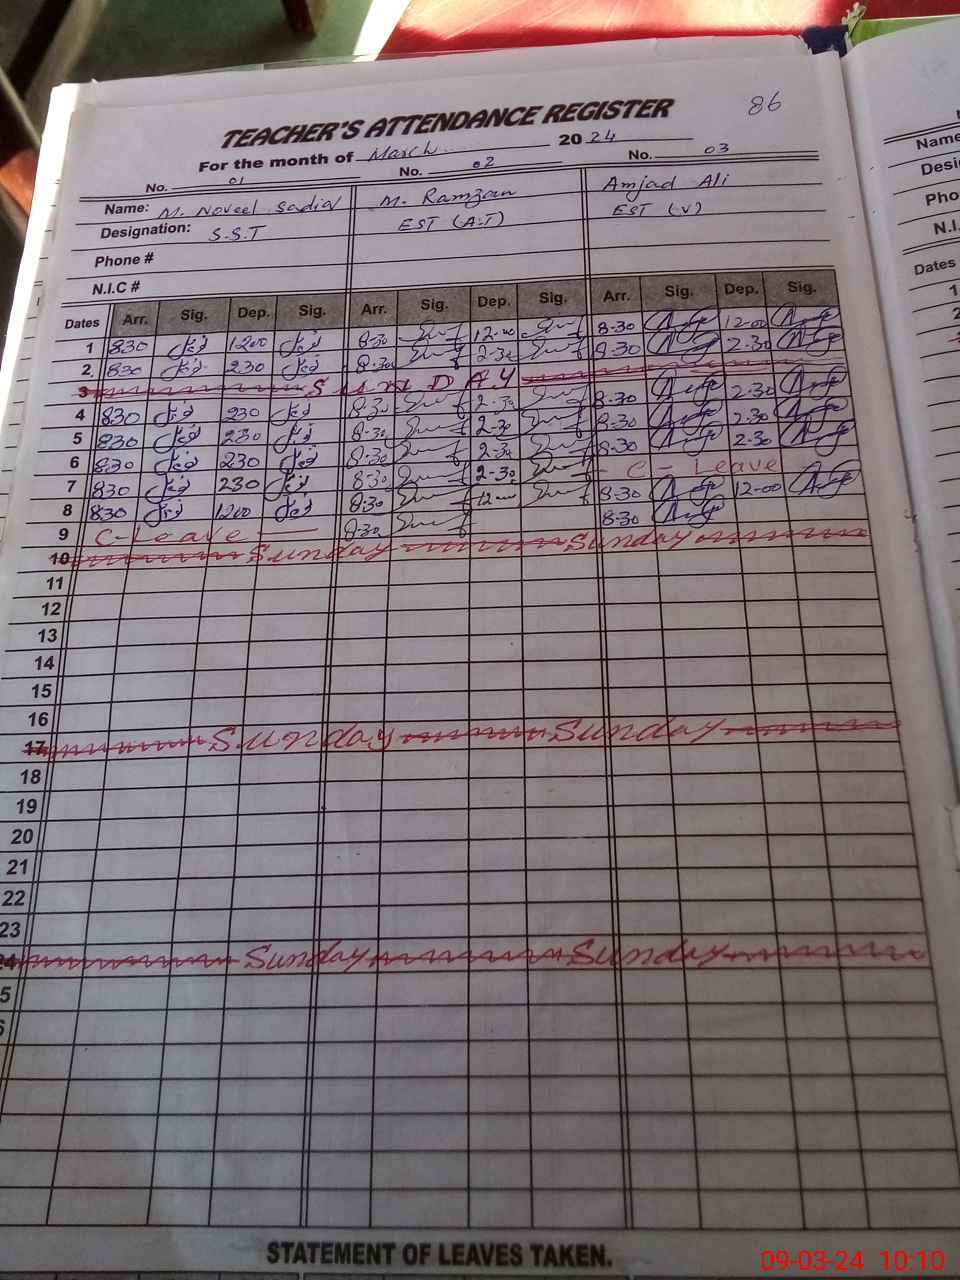 86
TEACHER'S ATTENDANCE REGISTER
For the month of March 2024
No. 01 No. 02 No. 03
Name: M. Noveel Sadiq M. Ramzan Amjad Ali
Designation: S.S.T EST (A.T) EST (V)
Phone #
N.I.C #
Dates Arr. Sig. Dep. Sig. Arr. Sig. Dep. Sig. Arr. Sig. Dep. Sig.
1 830 1200 8-30 12-00 8-30 12-00
2 830 230 8-30 2-30 8-30 2-30
3 SUNDAY
4 830 230 8-30 2-30 8-30 2-30
5 830 230 8-30 2-30 8-30 2-30
6 830 230 8-30 2-30 8-30 2-30
7 830 230 8-30 2-30 - C - Leave
8 830 1200 8-30 12-00 8-30 12-00
9 C-Leave - 8-30 8-30
10 Sunday Sunday
11
12
13
14
15
16
17 Sunday Sunday
18
19
20
21
22
23
24 Sunday Sunday
5
6
STATEMENT OF LEAVES TAKEN.
09-03-24 10:10
Name
Desi
Pho
N.I.
Dates
1
2